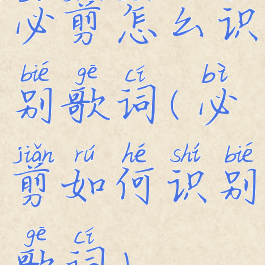 必剪怎么识
bié gē cí bì
别歌词(必
jiǎn rú hé shí bié
剪如何识别
gē cí
歌词)